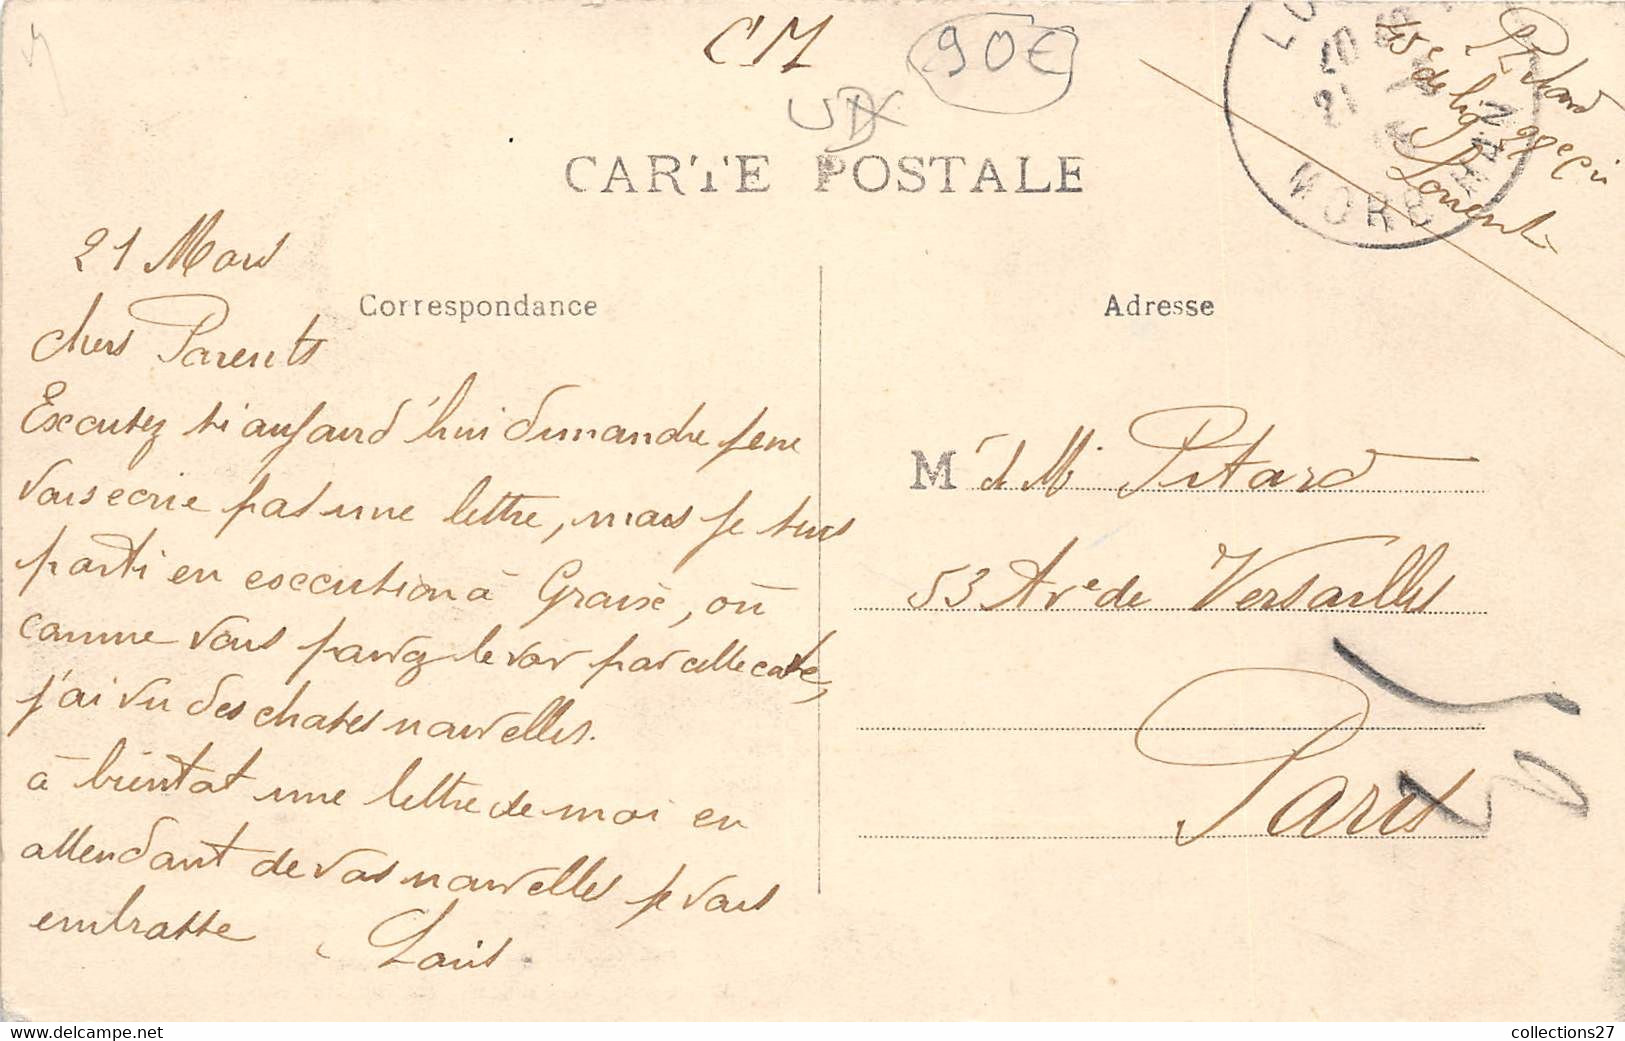 CM
90€
CARTE POSTALE
LO
MORBIHAN
21
Pitard
de lig
Lorient
21 Mars
Correspondance
Chers Parents
Excusez si aujourd'hui dimanche je ne
vous ecrie pas une lettre, mais je suis
parti en execution à Groix, où
comme vous pouvez le voir par cette carte,
j'ai vu des choses nouvelles.
à bientot une lettre de moi en
attendant de vos nouvelles je vous
embrasse Louis.
Adresse
M r et Me Pitard
53 Ave de Versailles
Paris
collections27